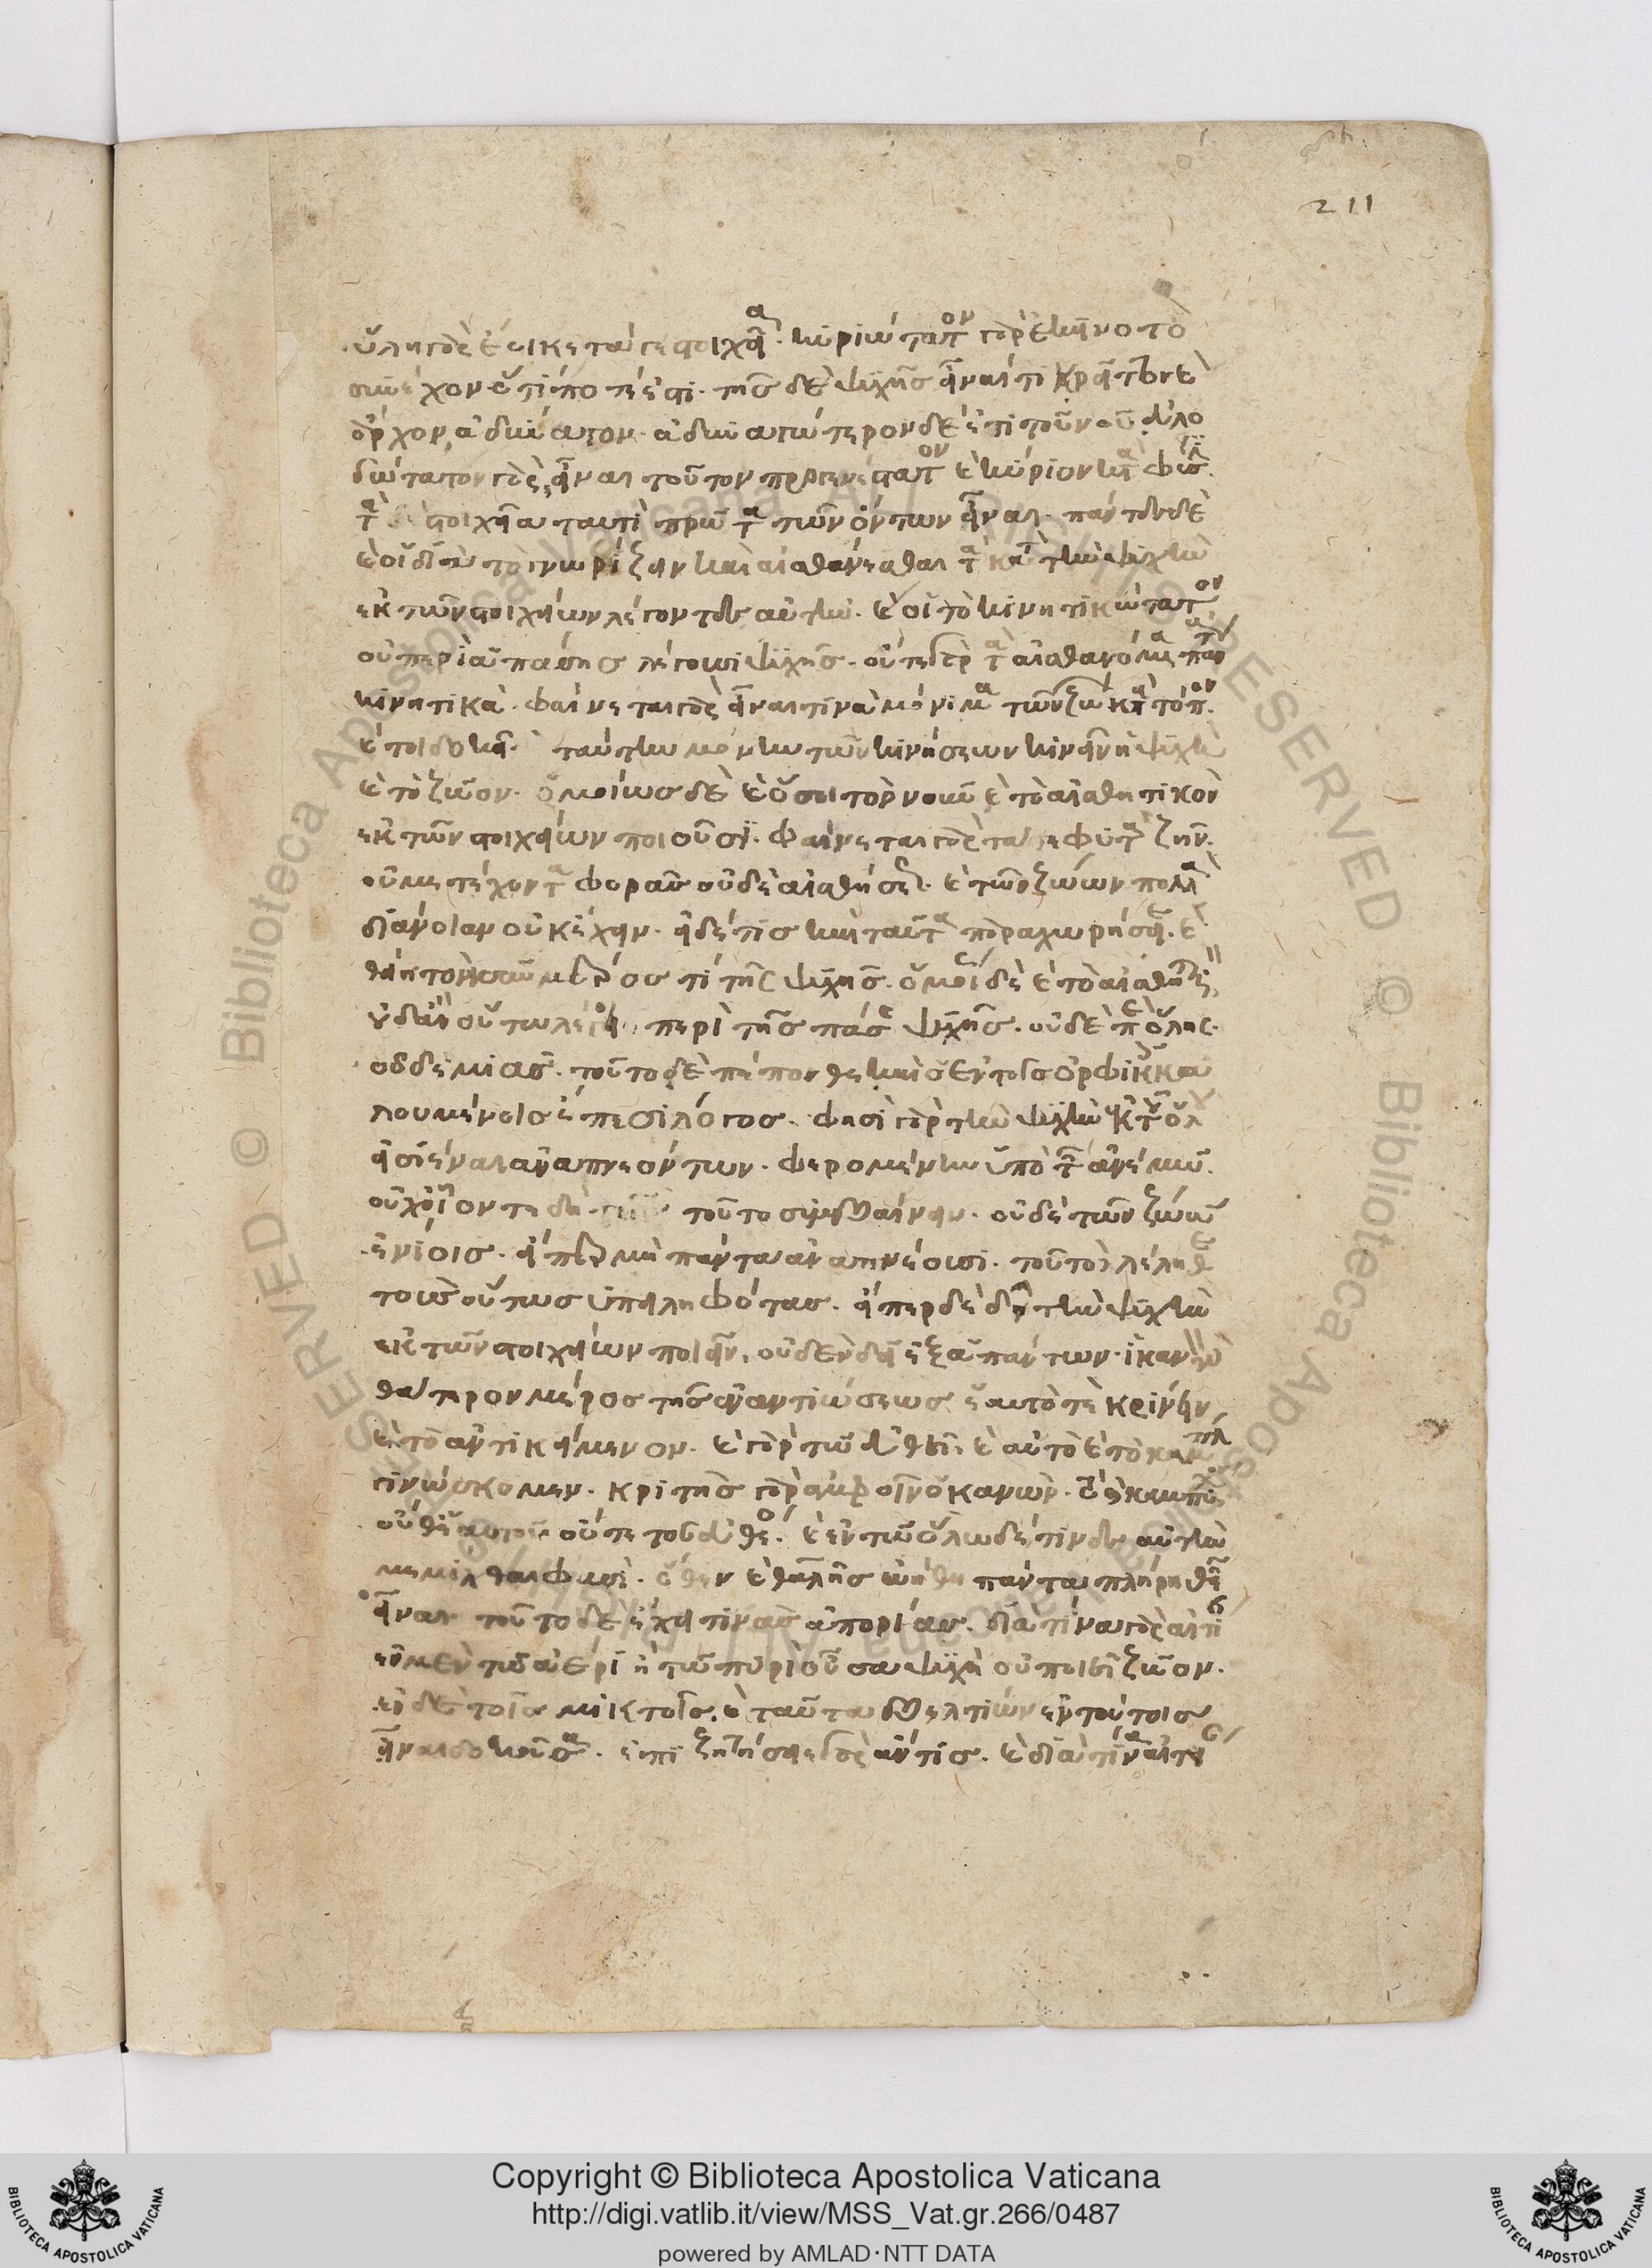 ὕλη γὰρ ἔοικε τά γε στοιχεῖα. κυριώτατον γὰρ ἐκεῖνο τὸ
συνέχον ὅ τί ποτέ ἐστι. τῆς δὲ ψυχῆς εἶναί τι κρεῖττον καὶ
ἄρχον, ἀδύνατον. ἀδυνατώτερον δὲ ἔτι τοῦ νοῦ. εὐλο
γώτατον γὰρ εἶναι τοῦτον προγενέστατον καὶ κύριον κατὰ φύσιν.
τὰ δὲ στοιχεῖα πρῶτα τῶν ὄντων εἶναι. πάντες δὲ
καὶ οἱ διὰ τὸ γνωρίζειν καὶ αἰσθάνεσθαι τὰ κατὰ τὴν ψυχὴν
ἐκ τῶν στοιχείων λέγοντες αὐτήν. καὶ οἱ τὸ κινητικώτατον,
οὐ περὶ ἁπάσης λέγουσι ψυχῆς. οὔτε γὰρ τὰ αἰσθανόμενα πάντα
κινητικά. φαίνεται γὰρ εἶναί τινα μόνιμα τῶν ζώων κατὰ τόπον.
καίτοι δοκεῖ ταύτην μόνην τῶν κινήσεων κινεῖν ἡ ψυχὴ
καὶ τὸ ζῶον. ὁμοίως δὲ καὶ ὅσοι τὸν νοῦν καὶ τὸ αἰσθητικὸν
ἐκ τῶν στοιχείων ποιοῦσι. φαίνεται γὰρ τά τε φυτὰ ζῆν.
οὐ μετέχοντα φορᾶς οὐδὲ αἰσθήσεως. καὶ τῶν ζώων πολλὰ
διάνοιαν οὐκ ἔχειν. εἰ δέ τις καὶ ταῦτα παραχωρήσειε. καὶ
θείη τὸν νοῦν μέρος τι τῆς ψυχῆς. ὁμοίως δὲ καὶ τὸ αἰσθητικόν,
οὐδ' ἂν οὕτω λέγοι περὶ τῆς πάσης ψυχῆς. οὐδὲ περὶ ὅλης.
οὐδεμιᾶς. τοῦτο δὲ πέπονθε καὶ ὁ ἐν τοῖς ὀρφικοῖς κα
λουμένοις ἔπεσι λόγος. φησὶ γὰρ τὴν ψυχὴν ἐκ τοῦ ὅλου
εἰσιέναι ἀναπνεόντων. φερομένην ὑπὸ τῶν ἀνέμων.
οὐχ οἷόν τε δὲ τοῦτο συμβαίνειν. οὐδὲ τῶν ζώων
ἐνίοις. εἴπερ μὴ πάντα ἀναπνέουσι. τοῦτο λέληθε
τοὺς οὕτως ὑπειληφότας. εἴπερ δὲ δεῖ τὴν ψυχὴν
ἐκ τῶν στοιχείων ποιεῖν, οὐδὲν δεῖ ἐξ ἁπάντων. ἱκανὸν
θάτερον μέρος τῆς ἐναντιώσεως ἑαυτό τε κρίνειν
καὶ τὸ ἀντικείμενον. καὶ γὰρ τῷ εὐθεῖ καὶ αὐτὸ καὶ τὸ καμπύλον
γινώσκομεν. κριτὴς γὰρ ἀμφοῖν ὁ κανών. τὸ δὲ καμπύλον
οὔθ' ἑαυτοῦ οὔτε τοῦ εὐθέος. καὶ ἐν τῷ ὅλῳ δέ τινες αὐτὴν
μεμίχθαι φασί. ὅθεν καὶ θαλῆς ᾠήθη πάντα πλήρη θεῶν
εἶναι. τοῦτο δὲ ἔχει τινὰς ἀπορίας. διὰ τίνα γὰρ αἰτίαν
ἐν μὲν τῷ ἀέρι ἢ τῷ πυρὶ οὖσα ψυχὴ οὐ ποιεῖ ζῶον.
ἐν δὲ τοῖς μικτοῖς. καὶ ταῦτα βελτίων ἐν τούτοις
εἶναι δοκοῦσα. ἐπιζητήσειε γὰρ ἄν τις. καὶ διὰ τίνα αἰτίαν
211